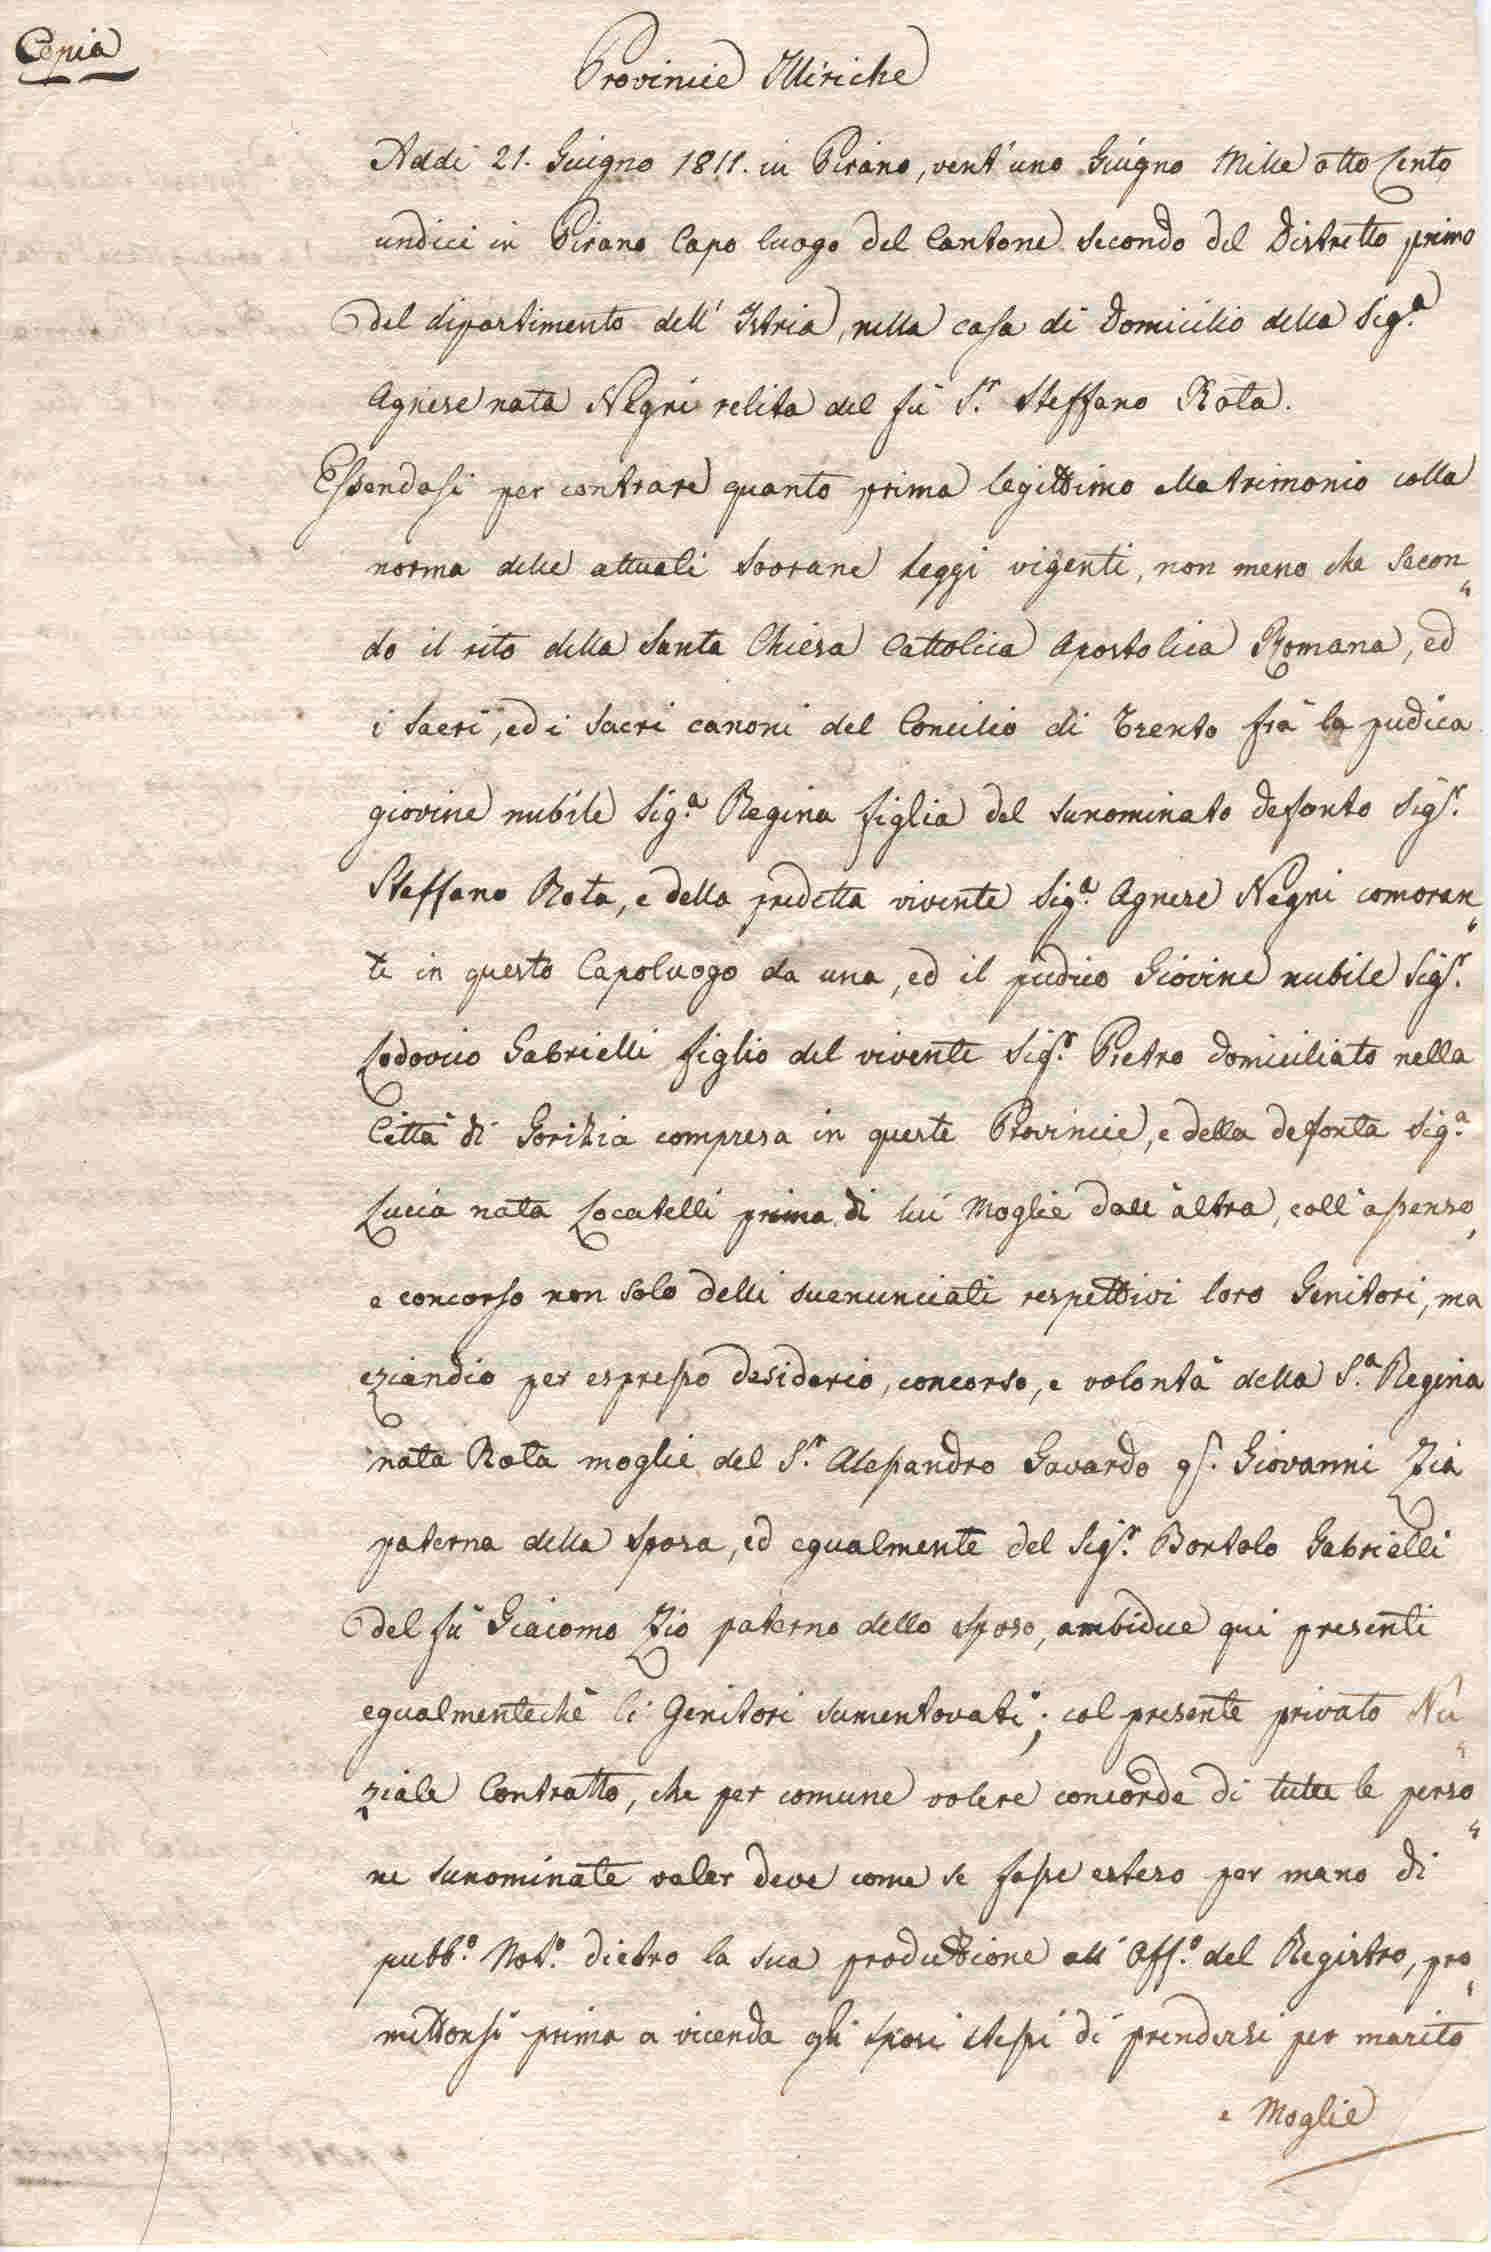 Copia
Provincie Illiriche
Addi 21. Giugno 1811. in Pirano, vent'uno Giugno Mille otto Cento
undici in Pirano Capo luogo del Cantone secondo del Distretto primo
del dipartimento dell'Istria, nella casa di Domicilio della Sig.ª
Agnese nata Negri relita del fù S.r Steffano Rota.
Essendosi per contrare quanto prima legittimo Matrimonio colla
norma delle attuali Sovrane Leggi vigenti, non meno che Secon„
do il rito della Santa Chiesa Cattolica Apostolica Romana, ed
i Sacri, ed i Sacri canoni del Concilio di Trento frà la pudica
giovine nubile Sig.ª Regina figlia del sunominato defonto Sig.r
Steffano Rota, e della predetta vivente Sig.ª Agnese Negri comoran„
te in questo Capoluogo da una, ed il pudico Giovine nubile Sig.r
Lodovico Gabrielli figlio del vivente Sig.r Pietro domiciliato nella
Città di Gorizia compresa in queste Provincie, e della defonta Sig.ª
Lucia nata Locatelli prima di lui Moglie dall'altra, coll'assenso,
e concorso non solo delli suenunciati respettivi loro Genitori, ma
eziandio per espresso desiderio, concorso, e volontà della S.ª Regina
nata Rota moglie del S.r Alessandro Gavardo q. Giovanni Zia
paterna della Sposa, ed egualmente del Sig.r Bortolo Gabrielli
del fù Giacomo Zio paterno dello Sposo, ambidue qui presenti
egualmentechè li Genitori sumentovati; col presente privato Nu„
ziale Contratto, che per comune volere concorde di tutte le perso„
ne sunominate valer deve come se fosse esteso per mano di
pubb.º Not.º dietro la sua produzione all'Off.º del Registro, pro„
mettonsi prima a vicenda gli sposi stessi di prendersi per marito
e Moglie